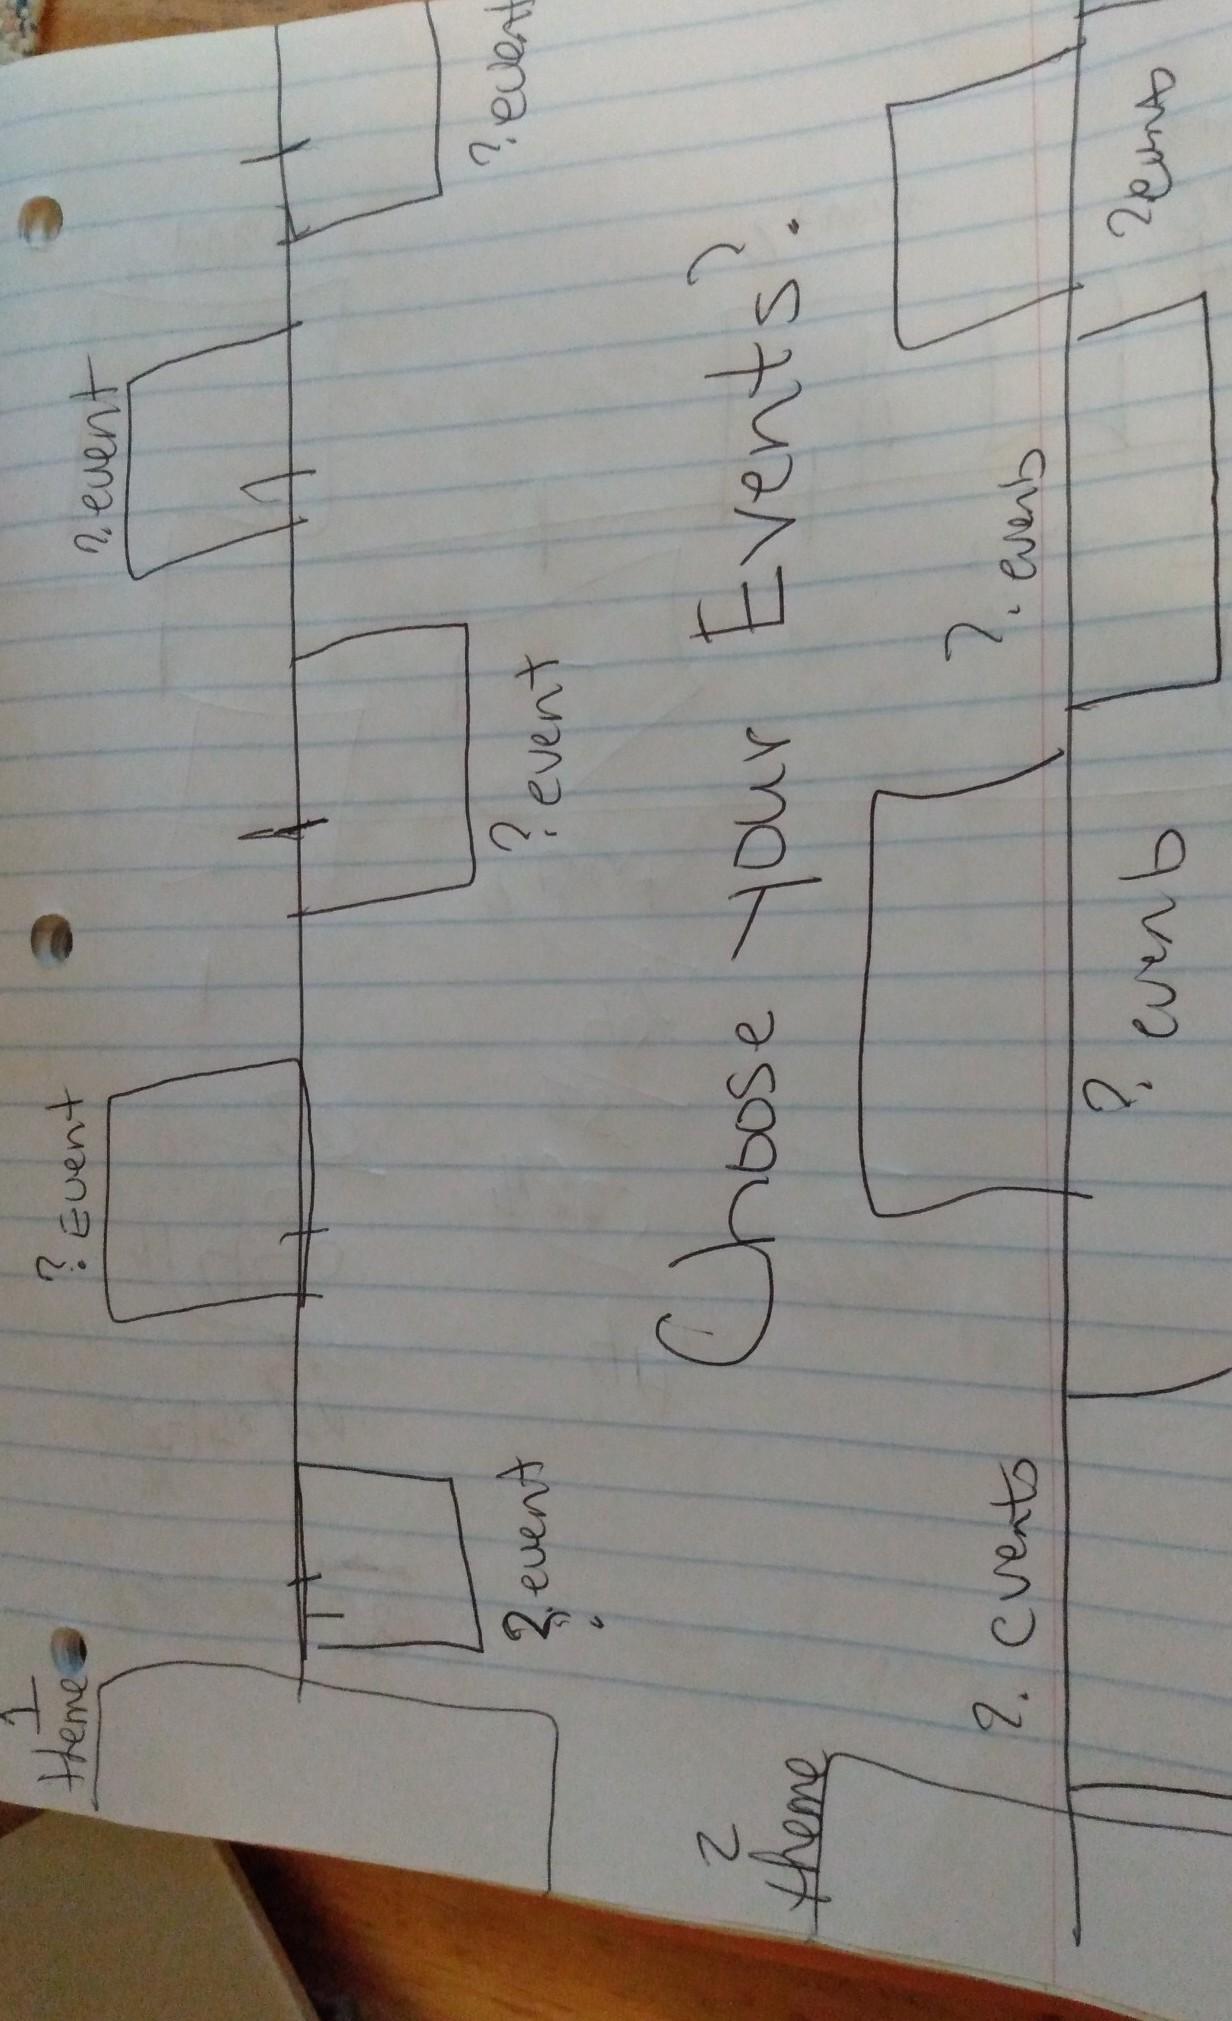 1
theme
? Event
? event
? event
? event
? event
Choose your Events?
2
theme
?. events
?. events
? events
? events